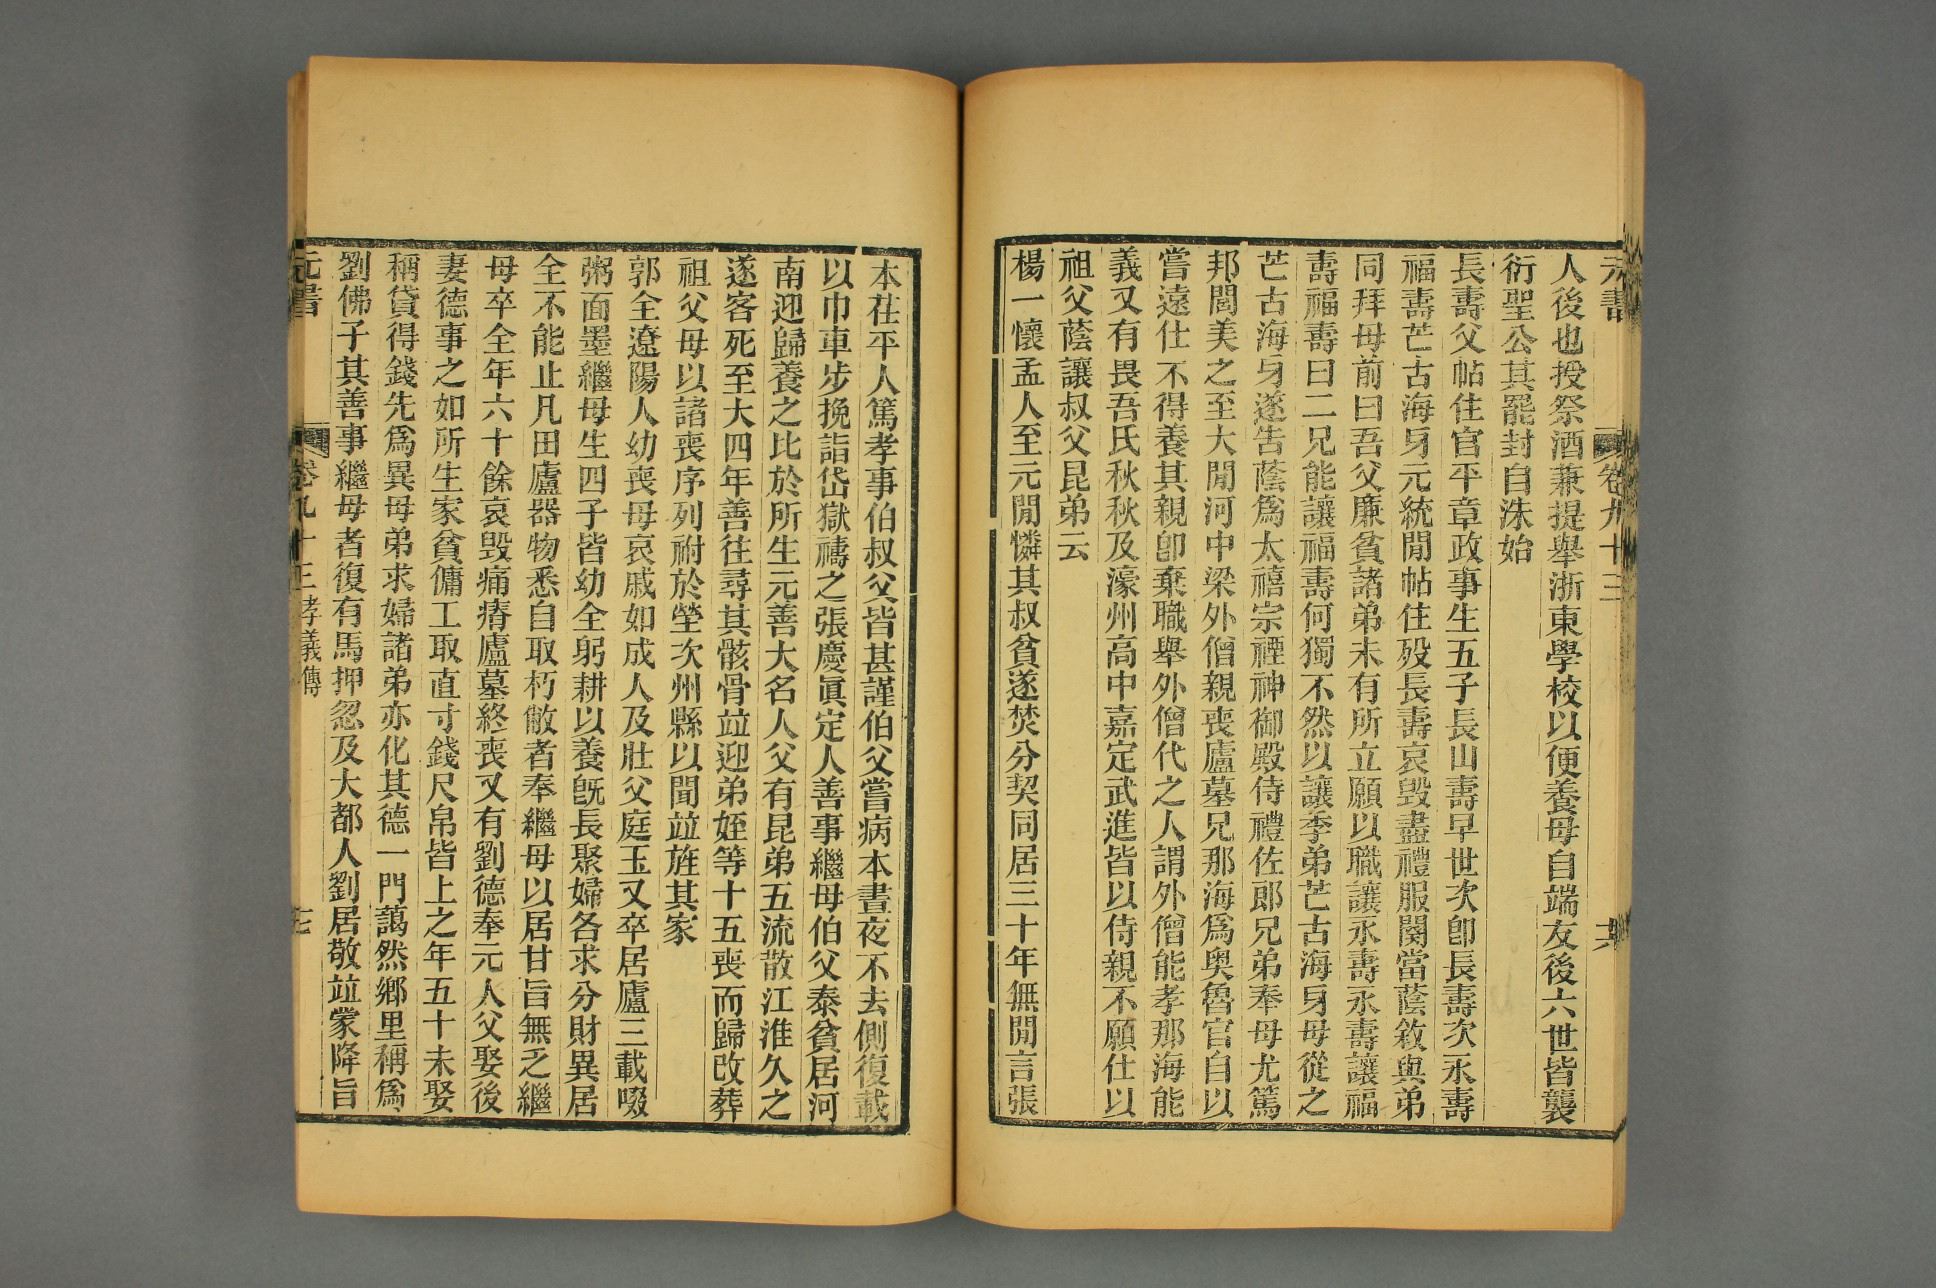 人後也授祭酒兼提舉浙東學校以便養母自端友後六世皆襲
衍聖公其罷封自洙始
長壽父帖住官平章政事生五子長山壽早世次卽長壽次永壽
福壽芒古海牙元統閒帖住歿長壽哀毀盡禮服闋當蔭敘與弟
同拜母前曰吾父廉貧諸弟未有所立願以職讓永壽永壽讓福
壽福壽曰二兄能讓福壽何獨不然以讓季弟芒古海牙母從之
芒古海牙遂告蔭爲太禧宗禋神御殿侍禮佐郎兄弟奉母尤篤
邦閭美之至大閒河中梁外僧親喪廬墓兄那海爲奥魯官自以
嘗遠仕不得養其親卽棄職舉外僧代之人謂外僧能孝那海能
義又有畏吾氏秋秋及濠州高中嘉定武進皆以侍親不願仕以
祖父蔭讓叔父昆弟云
楊一懷孟人至元閒憐其叔貧遂焚分契同居三十年無閒言張
本茌平人篤孝事伯叔父皆甚謹伯父嘗病本晝夜不去側復載
以巾車步挽詣岱獄禱之張慶眞定人善事繼母伯父泰貧居河
南迎歸養之比於所生元善大名人父有昆弟五流散江淮久之
遂客死至大四年善往尋其骸骨竝迎弟姪等十五喪而歸改葬
祖父母以諸喪序列祔於塋次州縣以聞竝旌其家
郭全遼陽人幼喪母哀戚如成人及壯父庭玉又卒居廬三載啜
粥面墨繼母生四子皆幼全躬耕以養旣長聚婦各求分財異居
全不能止凡田廬器物悉自取朽敝者奉繼母以居甘旨無乏繼
母卒全年六十餘哀毀痛瘠廬墓終喪又有劉德奉元人父娶後
妻德事之如所生家貧傭工取直寸錢尺帛皆上之年五十未娶
稱貸得錢先爲異母弟求婦諸弟亦化其德一門藹然鄉里稱爲
劉佛子其善事繼母者復有馬押忽及大都人劉居敬竝蒙降旨
元書
卷九十三 孝義傳